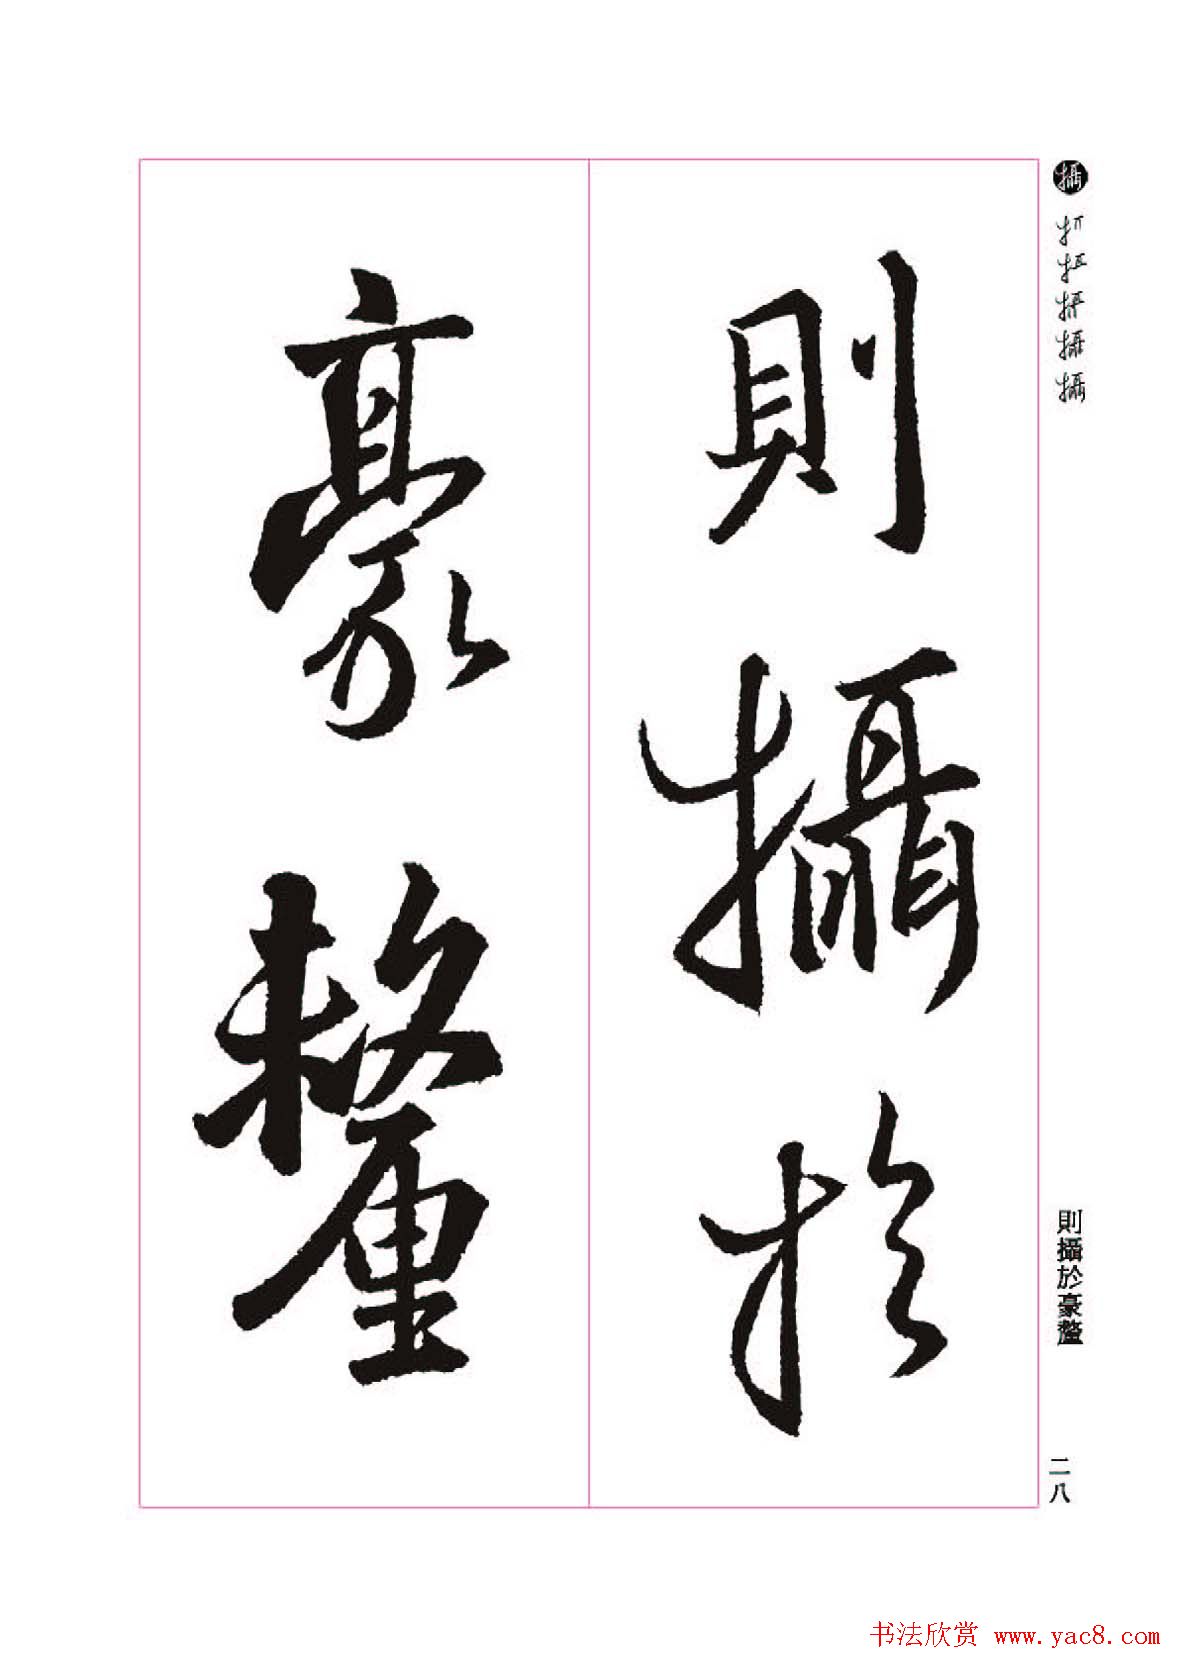 攝
則攝於豪釐
二八
則攝於
豪釐
书法欣赏 www.yac8.com